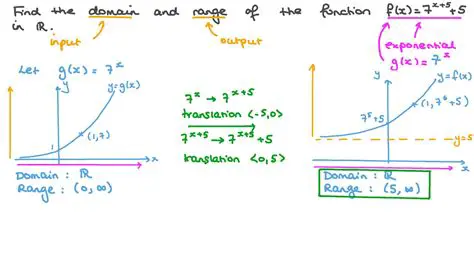 Find the domain and range of the function f(x) = 7^{x+5} + 5
in ℝ.
input
output
exponential
g(x) = 7^x
Let g(x) = 7^x
y
y = g(x)
(1, 7)
1
x
Domain : ℝ
Range : (0, ∞)
7^x → 7^{x+5}
translation <-5, 0>
7^{x+5} → 7^{x+5} + 5
translation <0, 5>
y
y = f(x)
7^5 + 5
(1, 7^6 + 5)
y = 5
x
Domain : ℝ
Range : (5, ∞)